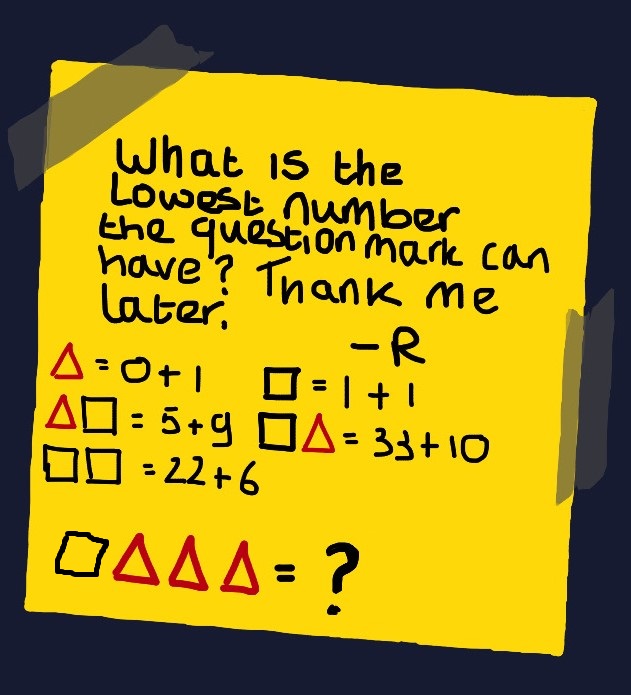 What is the
Lowest number
the question mark can
have? Thank me
Later.
-R
△ = 0+1 □ = 1+1
△□ = 5+9 □△ = 33+10
□□ = 22+6
□△△△ = ?